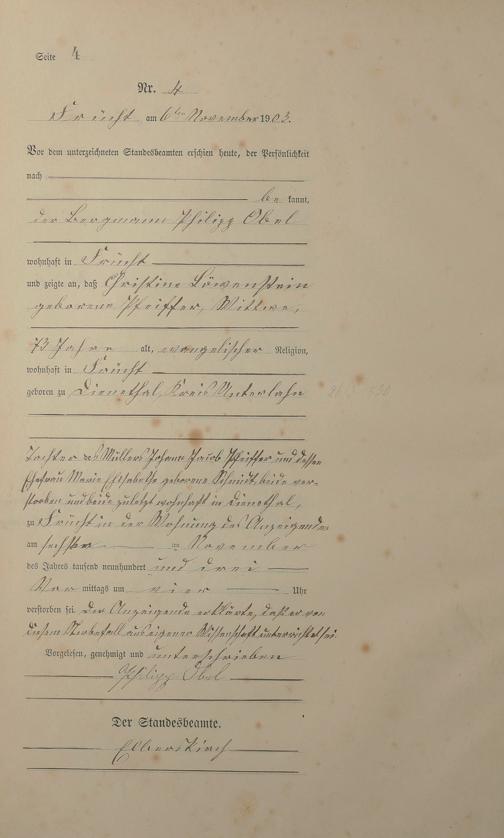 Seite 4
Nr. 4
Frücht am 6ten November 1903.
Vor dem unterzeichneten Standesbeamten erschien heute, der Persönlichkeit
nach
be kannt,
der Bergmann Philipp Obel
wohnhaft in Frücht
und zeigte an, daß Christine Löwenstein
geborene Pfeiffer, Wittwe,
73 Jahre alt, evangelischer Religion,
wohnhaft in Frücht
geboren zu Dienethal, Kreis Unterlahn
Tochter des Müllers Johann Jacob Pfeiffer und dessen
Ehefrau Marie Elisabethe geborene Schmidt, beide ver-
storben und beide zuletzt wohnhaft in Dienethal,
zu Frücht in der Wohnung des Anzeigenden
am sechsten November
des Jahres tausend neunhundert und drei
Vor mittags um vier Uhr
verstorben sei. Der Anzeigende erklärte, daß er von
diesem Sterbefall aus eigener Wissenschaft unterrichtet sei.
Vorgelesen, genehmigt und unterschrieben
Philipp Obel
Der Standesbeamte.
Elberskirch